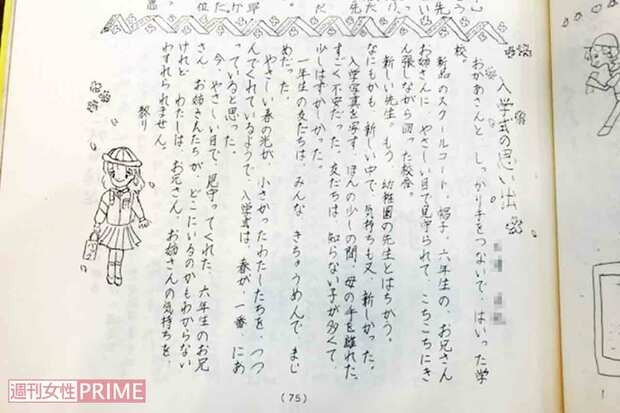 入学式の思い出
おかあさんと、しっかり手をつないで、はいった学
校。
新品のスクールコート、帽子。六年生の、お兄さん
お姉さんに、やさしい目で見守られて、こちこちにき
ん張しながら回った校舎。
新しい先生。もう、幼稚園の先生とはちがう。
なにもかも、新しい中で、気持ちも又、新しかった。
入学写真を写す、ほんの少しの間、母の手を離れた。
すごく不安だった。友だちは、知らない子が多くて、
少しはずかしかった。
一年生の友だちは、みんな、きちょうめんで、まじ
めだった。
やさしい春の光が、小さかったわたしたちを、つつ
んでくれているようで、入学式は、春が、一番、にあ
っていると思った。
今、やさしい目で、見守ってくれた、六年生のお兄
さん、お姉さんたちが、どこにいるのかもわからない
けれど、わたしは、お兄さん、お姉さんの気持ちを、
わすれられません。
終り
(75)
週刊女性PRIME